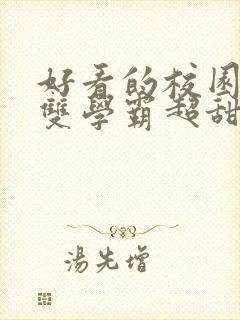 好看的校园
雙學霸超甜
湯先增